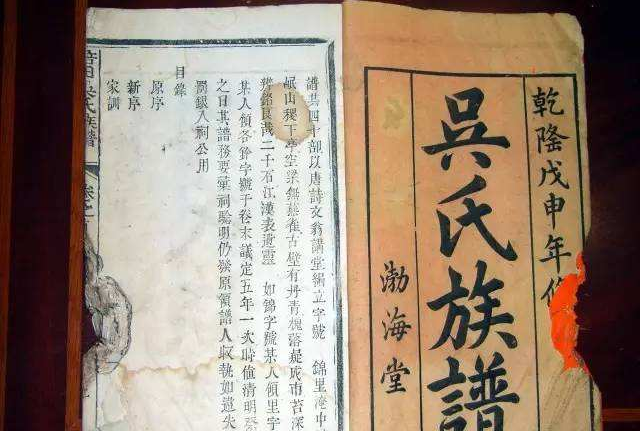 乾隆戊申年修
吳氏族譜
渤海堂
譜共四十部以唐詩文翁講堂編立字號 錦里淹中
岷山稷下亭空梁無燕雀古壁有丹青槐落疑成市苔深
辨銘良哉二千石江漢表遺靈 如錦字號某人領里字
某人領各於字號于卷末議定五年一次時值清明祭
之日其譜務要彙祠聰明仍發原領譜人收執如遺失
罰銀入祠公用
目錄
原序
新序
家訓
吳氏族譜